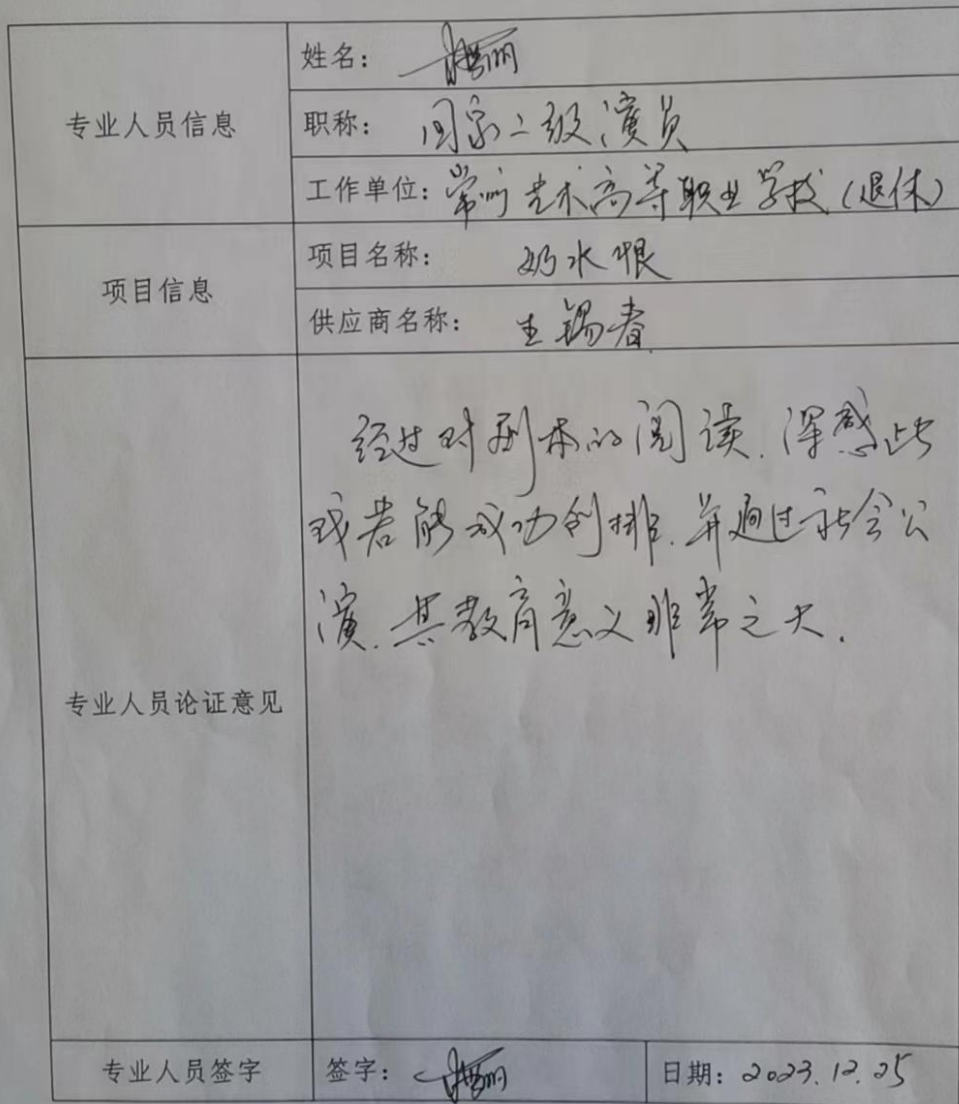 专业人员信息
姓名：
职称： 国家二级演员
工作单位：常州艺术高等职业学校（退休）
项目信息
项目名称： 奶水恨
供应商名称： 王锡春
专业人员论证意见
经过对剧本的阅读，深感此
戏若能成功创排，并通过社会公
演，其教育意义非常之大.
专业人员签字
签字：
日期：2023.12.25